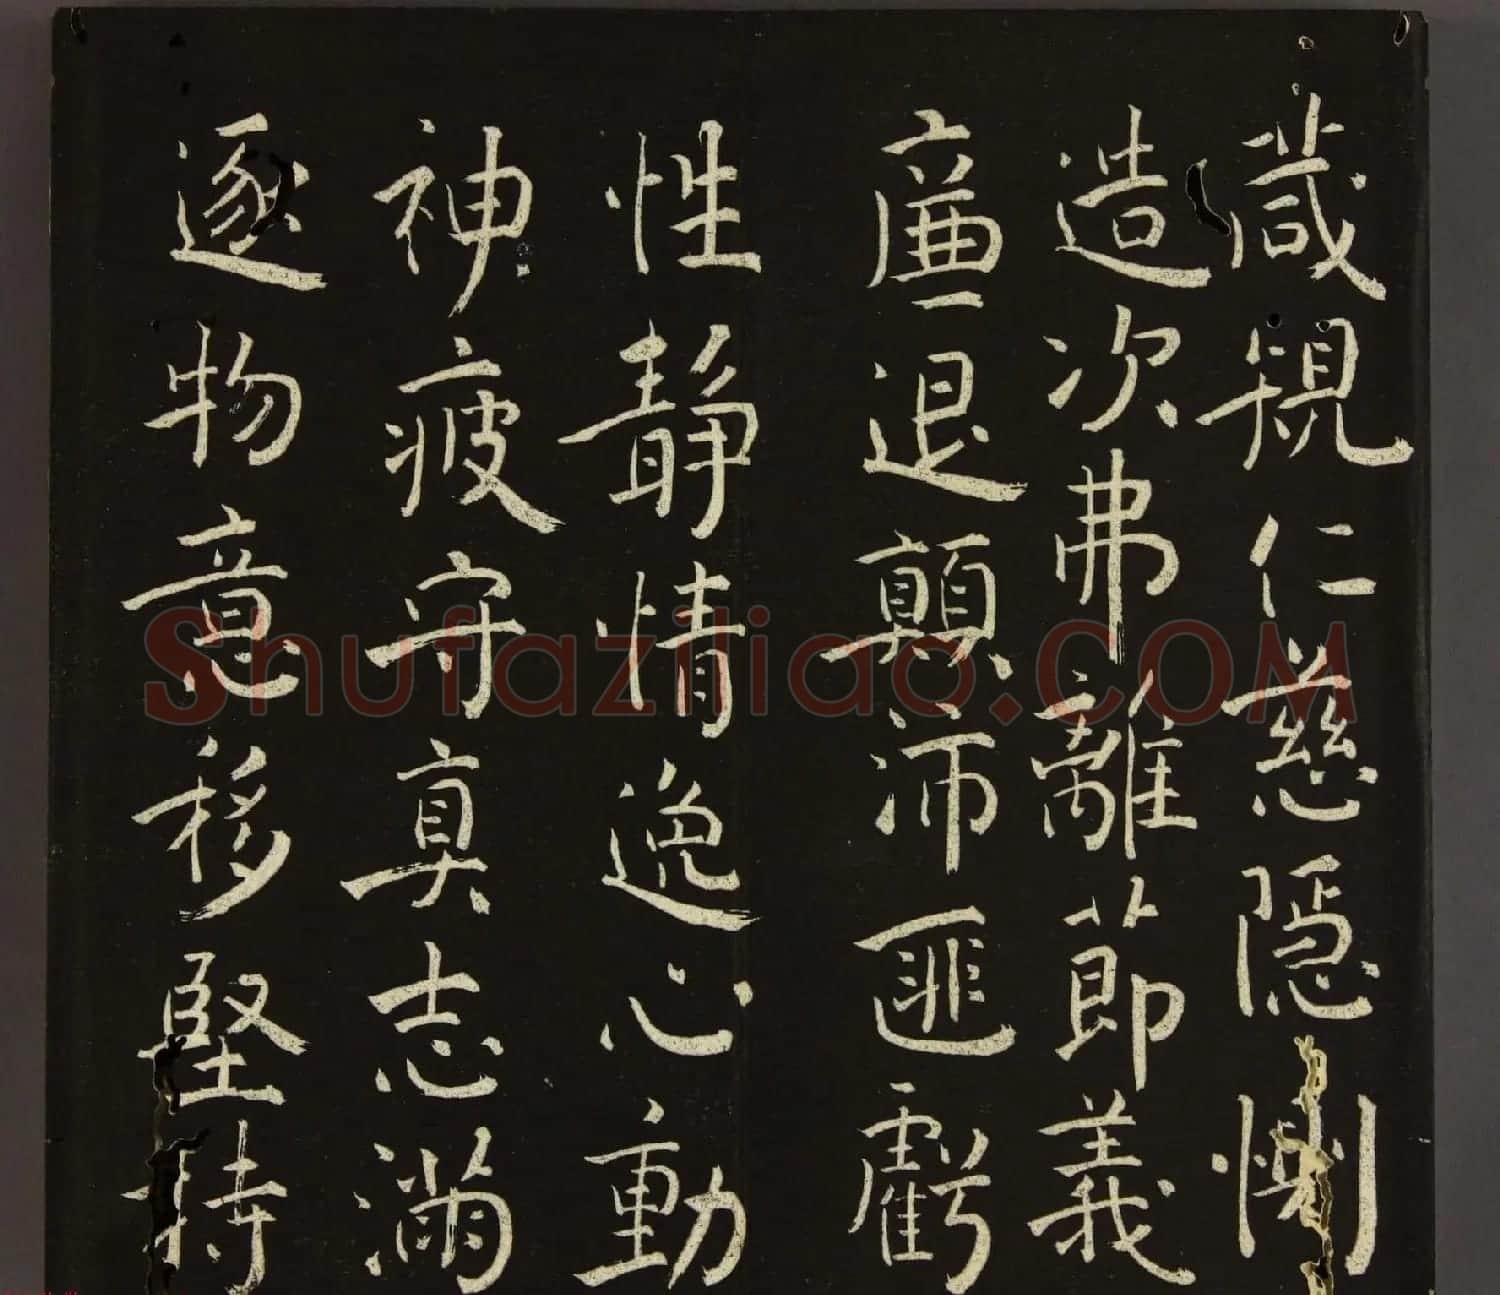 箴規仁慈隱惻
造次弗離節義
廉退顛沛匪虧
性靜情逸心動
神疲守真志滿
逐物意移堅持
Shufaziliao.COM